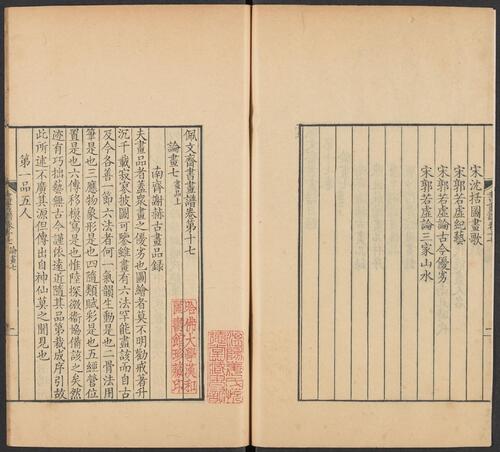 宋沈括圖畫歌
宋郭若虛紀藝
宋郭若虛論古今優劣
宋郭若虛論三家山水
佩文齋書畫譜卷第十七
論畫七 畫品上
南齊謝赫古畫品錄
夫畫品者蓋衆畫之優劣也圖繪者莫不明勸戒著升
沉千載寂寥披圖可鑒雖畫有六法罕能盡該而自古
及今各善一節六法者何一氣韻生動是也二骨法用
筆是也三應物象形是也四隨類賦彩是也五經營位
置是也六傳移模寫是也惟陸探微衞協備該之矣然
迹有巧拙藝無古今謹依遠近隨其品第裁成序引故
此所述不廣其源但傳出自神仙莫之聞見也
第一品五人
論畫七
哈佛大學漢和
圖書館珍藏印